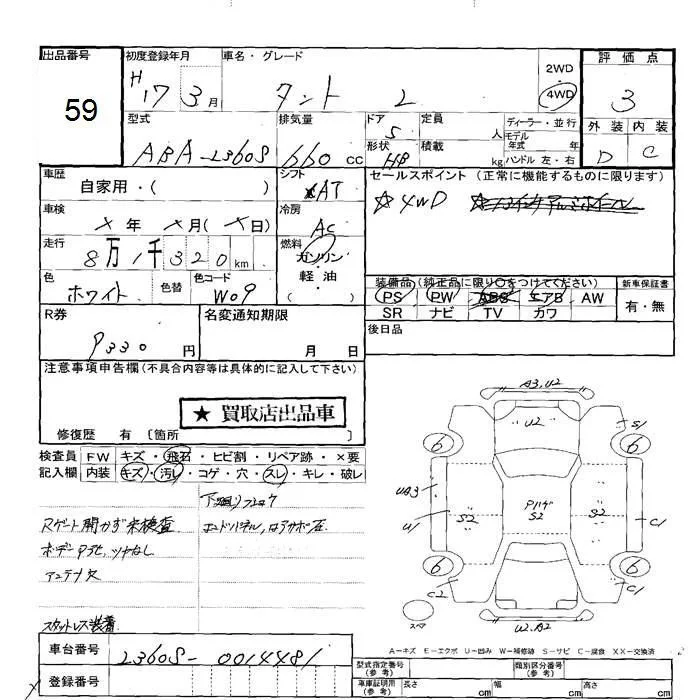 出品番号
59
初度登録年月
H17 3月
車名・グレード
タント L
2WD
4WD
評価点
3
外装 内装
D C
型式
ABA-L360S
排気量
660 cc
ドア
5
形状
HB
定員
人
積載
kg
ディーラー・並行
モデル年式 年
ハンドル 左・右
車歴
自家用・( )
シフト
AT
セールスポイント (正常に機能するものに限ります)
☆4WD
車検
× 年 × 月 (× 日)
冷房
AC
走行
8万1千320km
燃料
ガソリン・軽油
( )
色
ホワイト
色替
色コード
W09
装備品(純正品に限り○をつけてください)
PS PW ABS エアB AW
SR ナビ TV カワ
新車保証書
有・無
R券
9330 円
名変通知期限
月 日
後日品
注意事項申告欄(不具合内容等は具体的に記入して下さい)
★ 買取店出品車
修復歴 有 〔箇所 〕
検査員記入欄
FW キズ・飛石・ヒビ割・リペア跡・×要
内装 キズ・汚レ・コゲ・穴・スレ・キレ・破レ
下廻り
Rゲート開かず未検査
ボデー
ツヤなし
アンテナ欠
スタットレス装着
A3.U2
U2
S1
6
6
UA3
U1
S2
S2
S2
C1
6
6
C2
C1
スペア
U2.A2
A-キズ E-エクボ U-凹み W-補修跡 S-サビ C-腐食 XX-交換済
車台番号
L360S-0014481
登録番号
型式指定番号(参考)
類別区分番号(参考)
車庫証明用(参考)
長さ cm
幅 cm
高さ cm